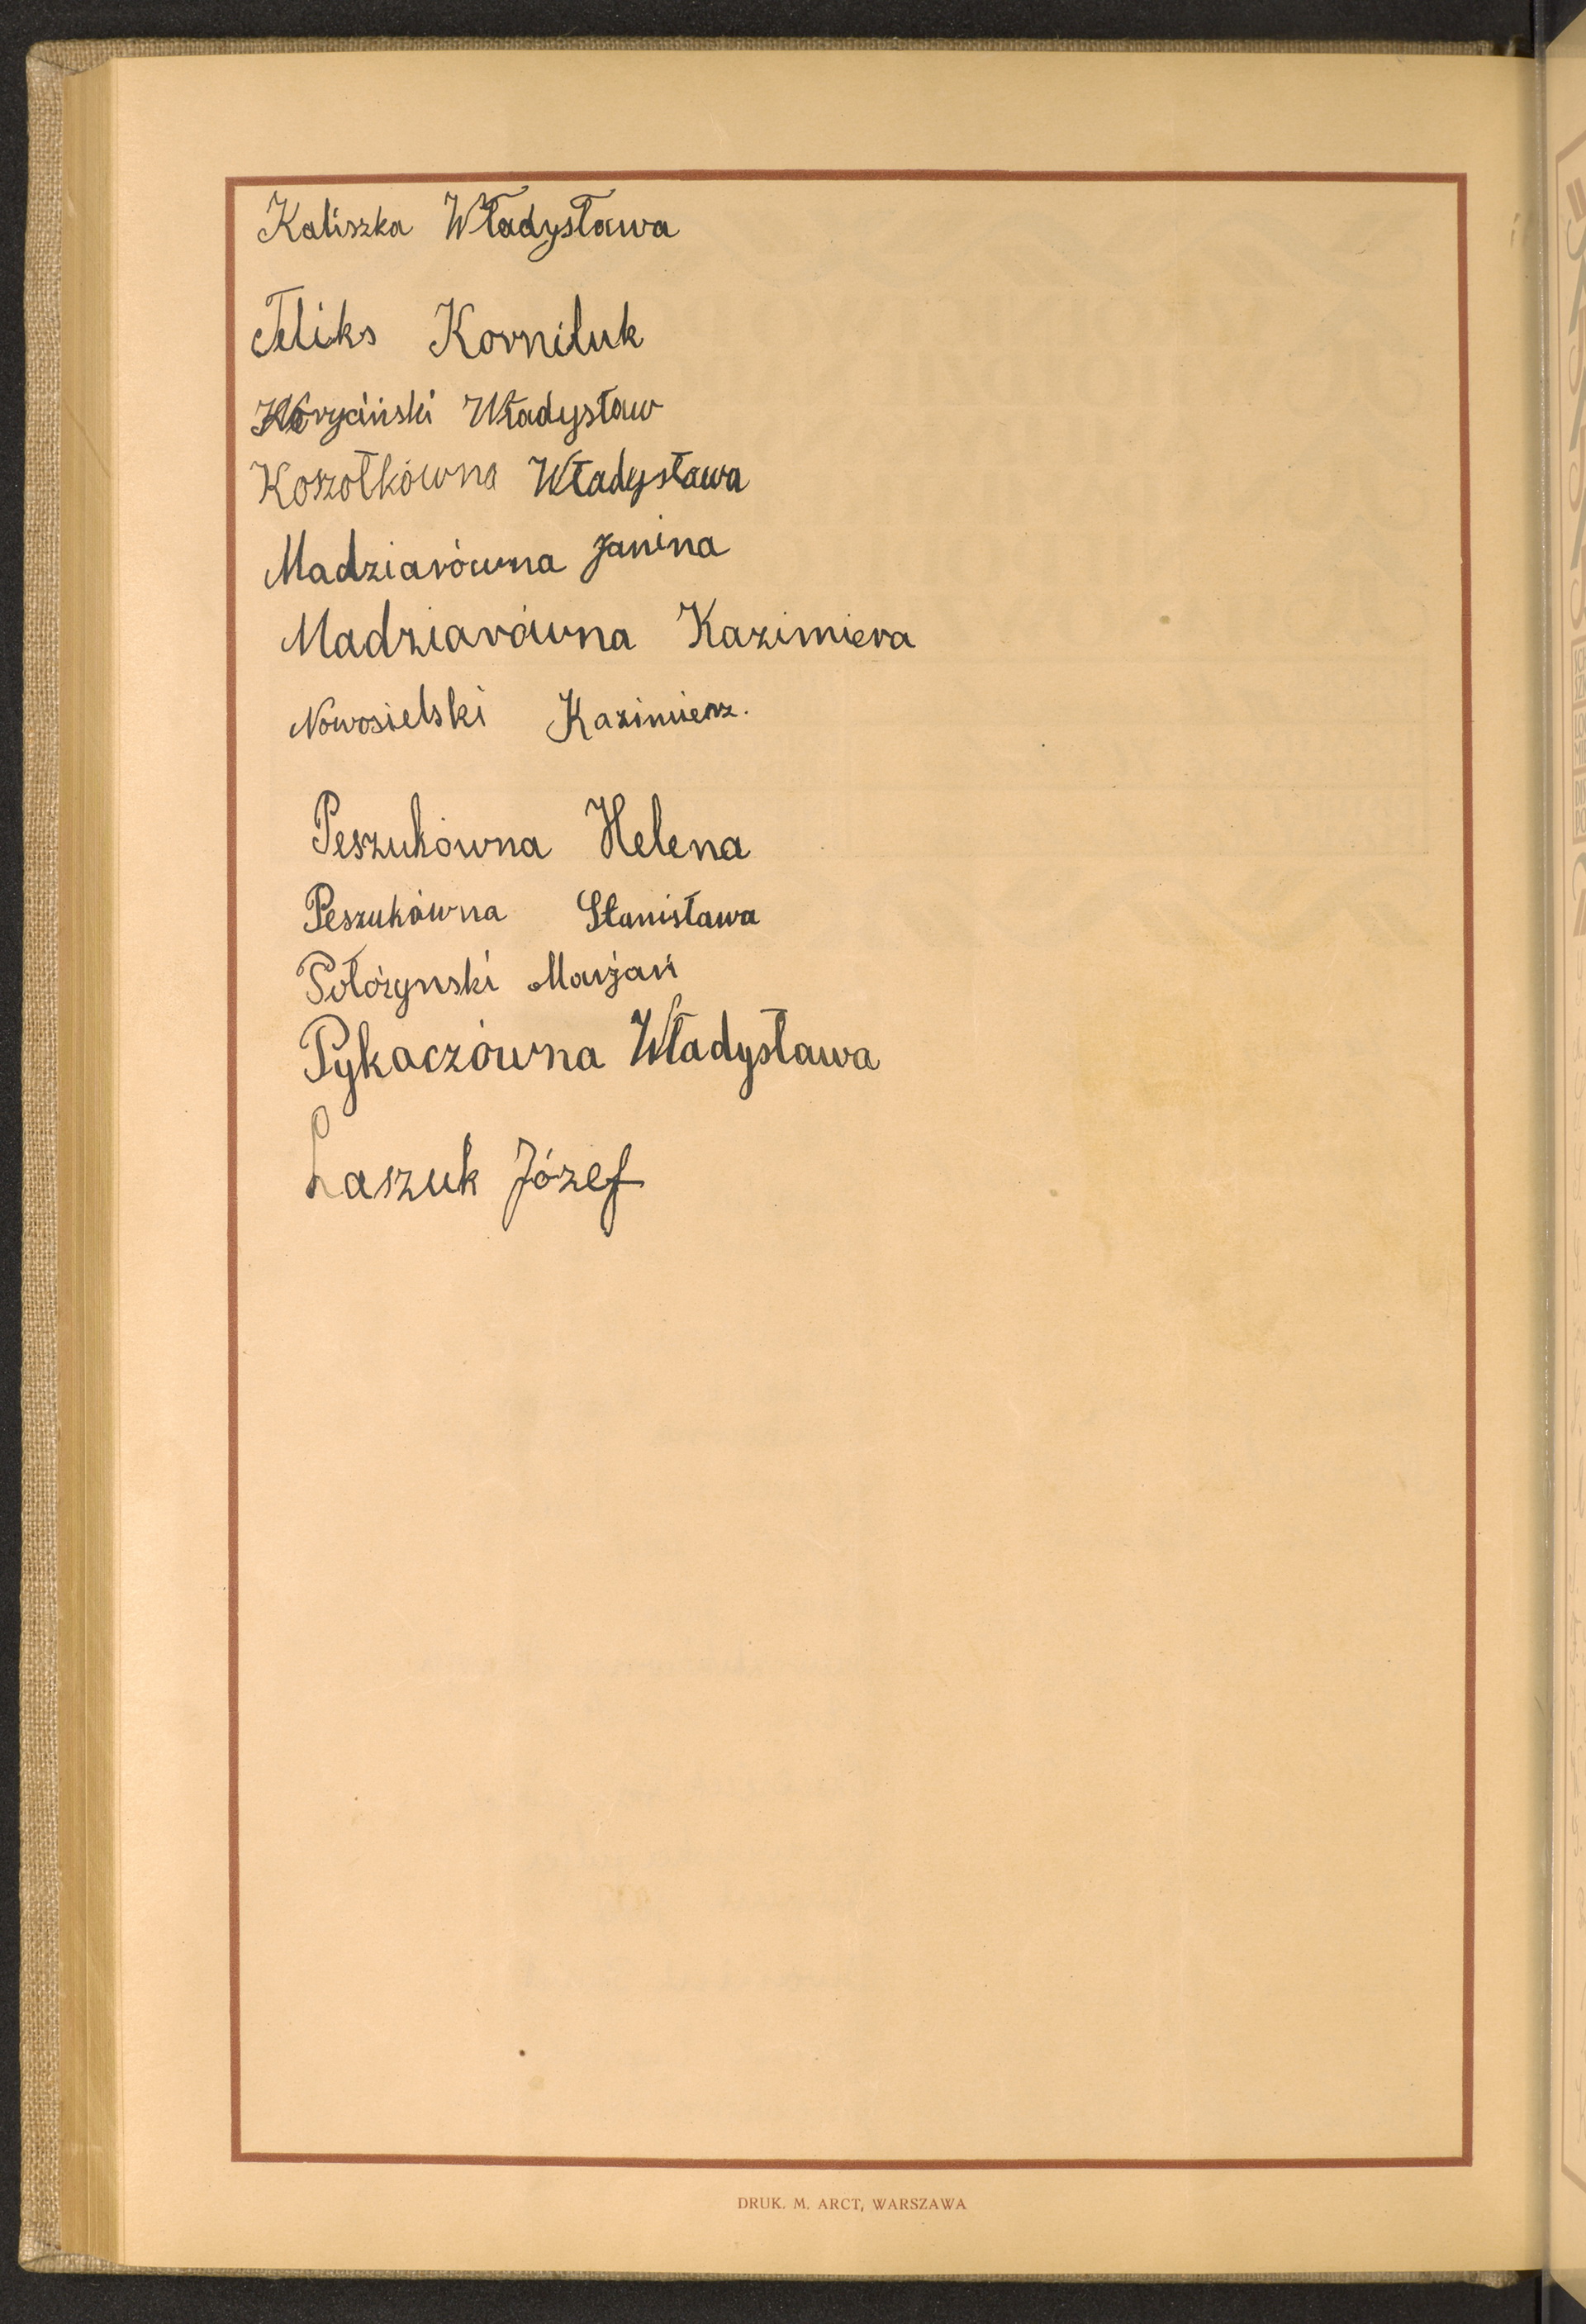 Kaliszka Władysława
Feliks Korniluk
Koryciński Władysław
Koszołkówna Władysława
Madziarówna Janina
Madziarówna Kazimiera
Nowosielski Kazimierz.
Peszukówna Helena
Peszukówna Stanisława
Połóżynski Marjan
Pykaczówna Władysława
Laszuk Józef
DRUK. M. ARCT, WARSZAWA